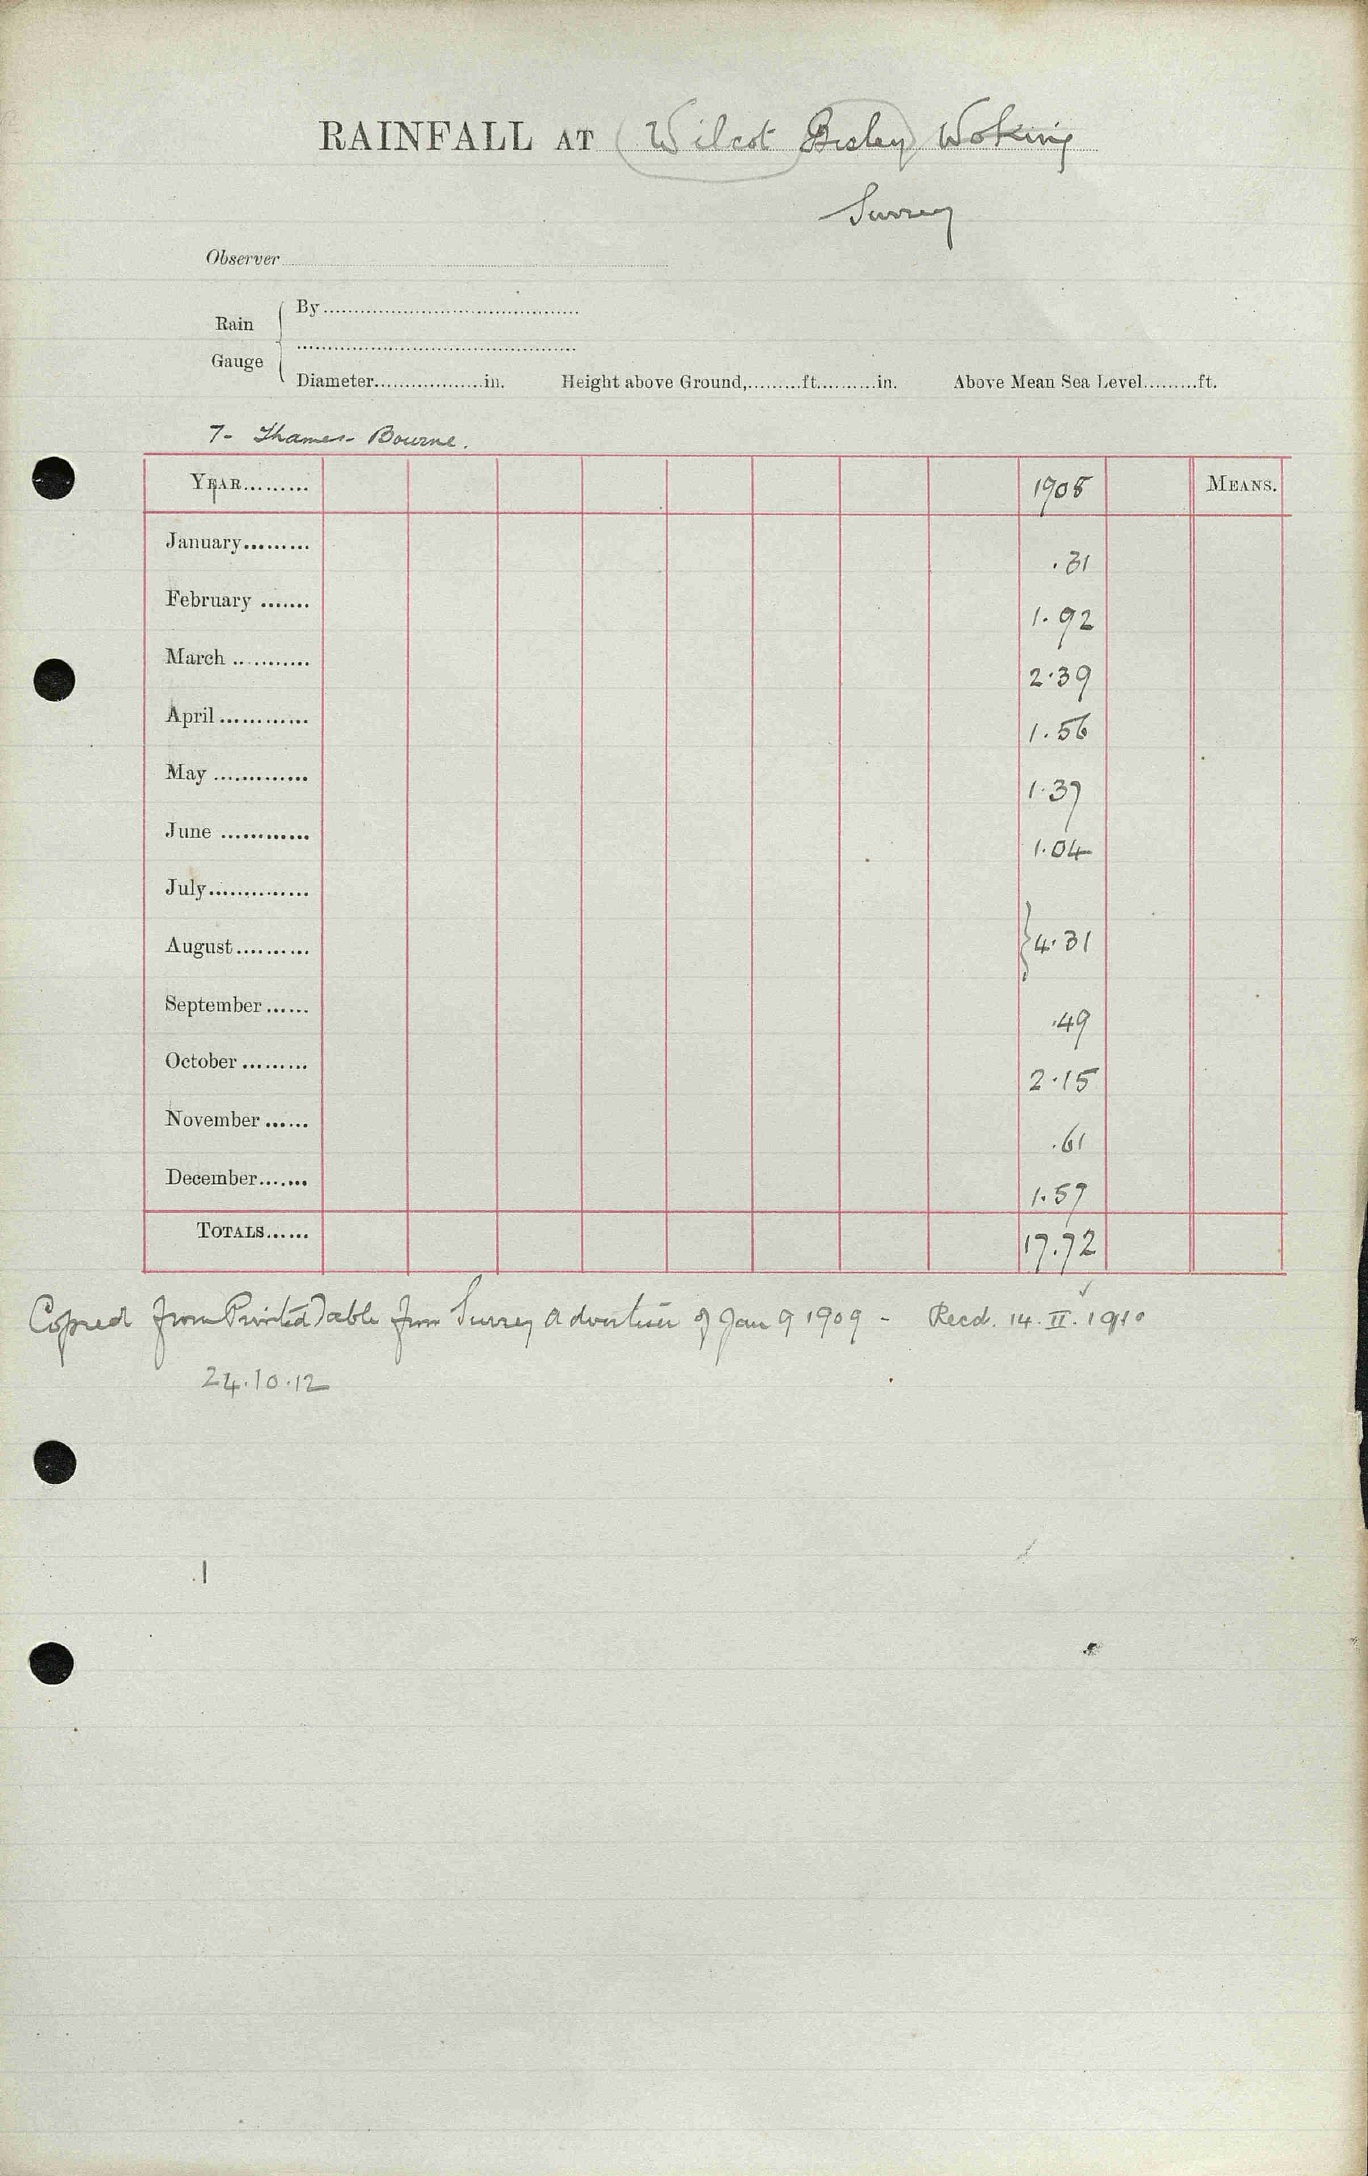 RAINFALL AT (Wilcot Bisley) Woking
Surrey
Observer
Rain Gauge { By
Diameter..................in. Height above Ground,.........ft..........in. Above Mean Sea Level.........ft.
7- Thames- Bourne.
YEAR......... 1908 MEANS.
January......... .31
February ....... 1.92
March ............ 2.39
April ............ 1.56
May ............. 1.37
June ............ 1.04
July..............
August.......... } 4.31
September ...... .49
October ......... 2.15
November ...... .61
December....... 1.57
TOTALS...... 17.72
Copied from Printed Table from Surrey Advertiser of Jan 9 1909 - Recd. 14. II. 1910
24.10.12